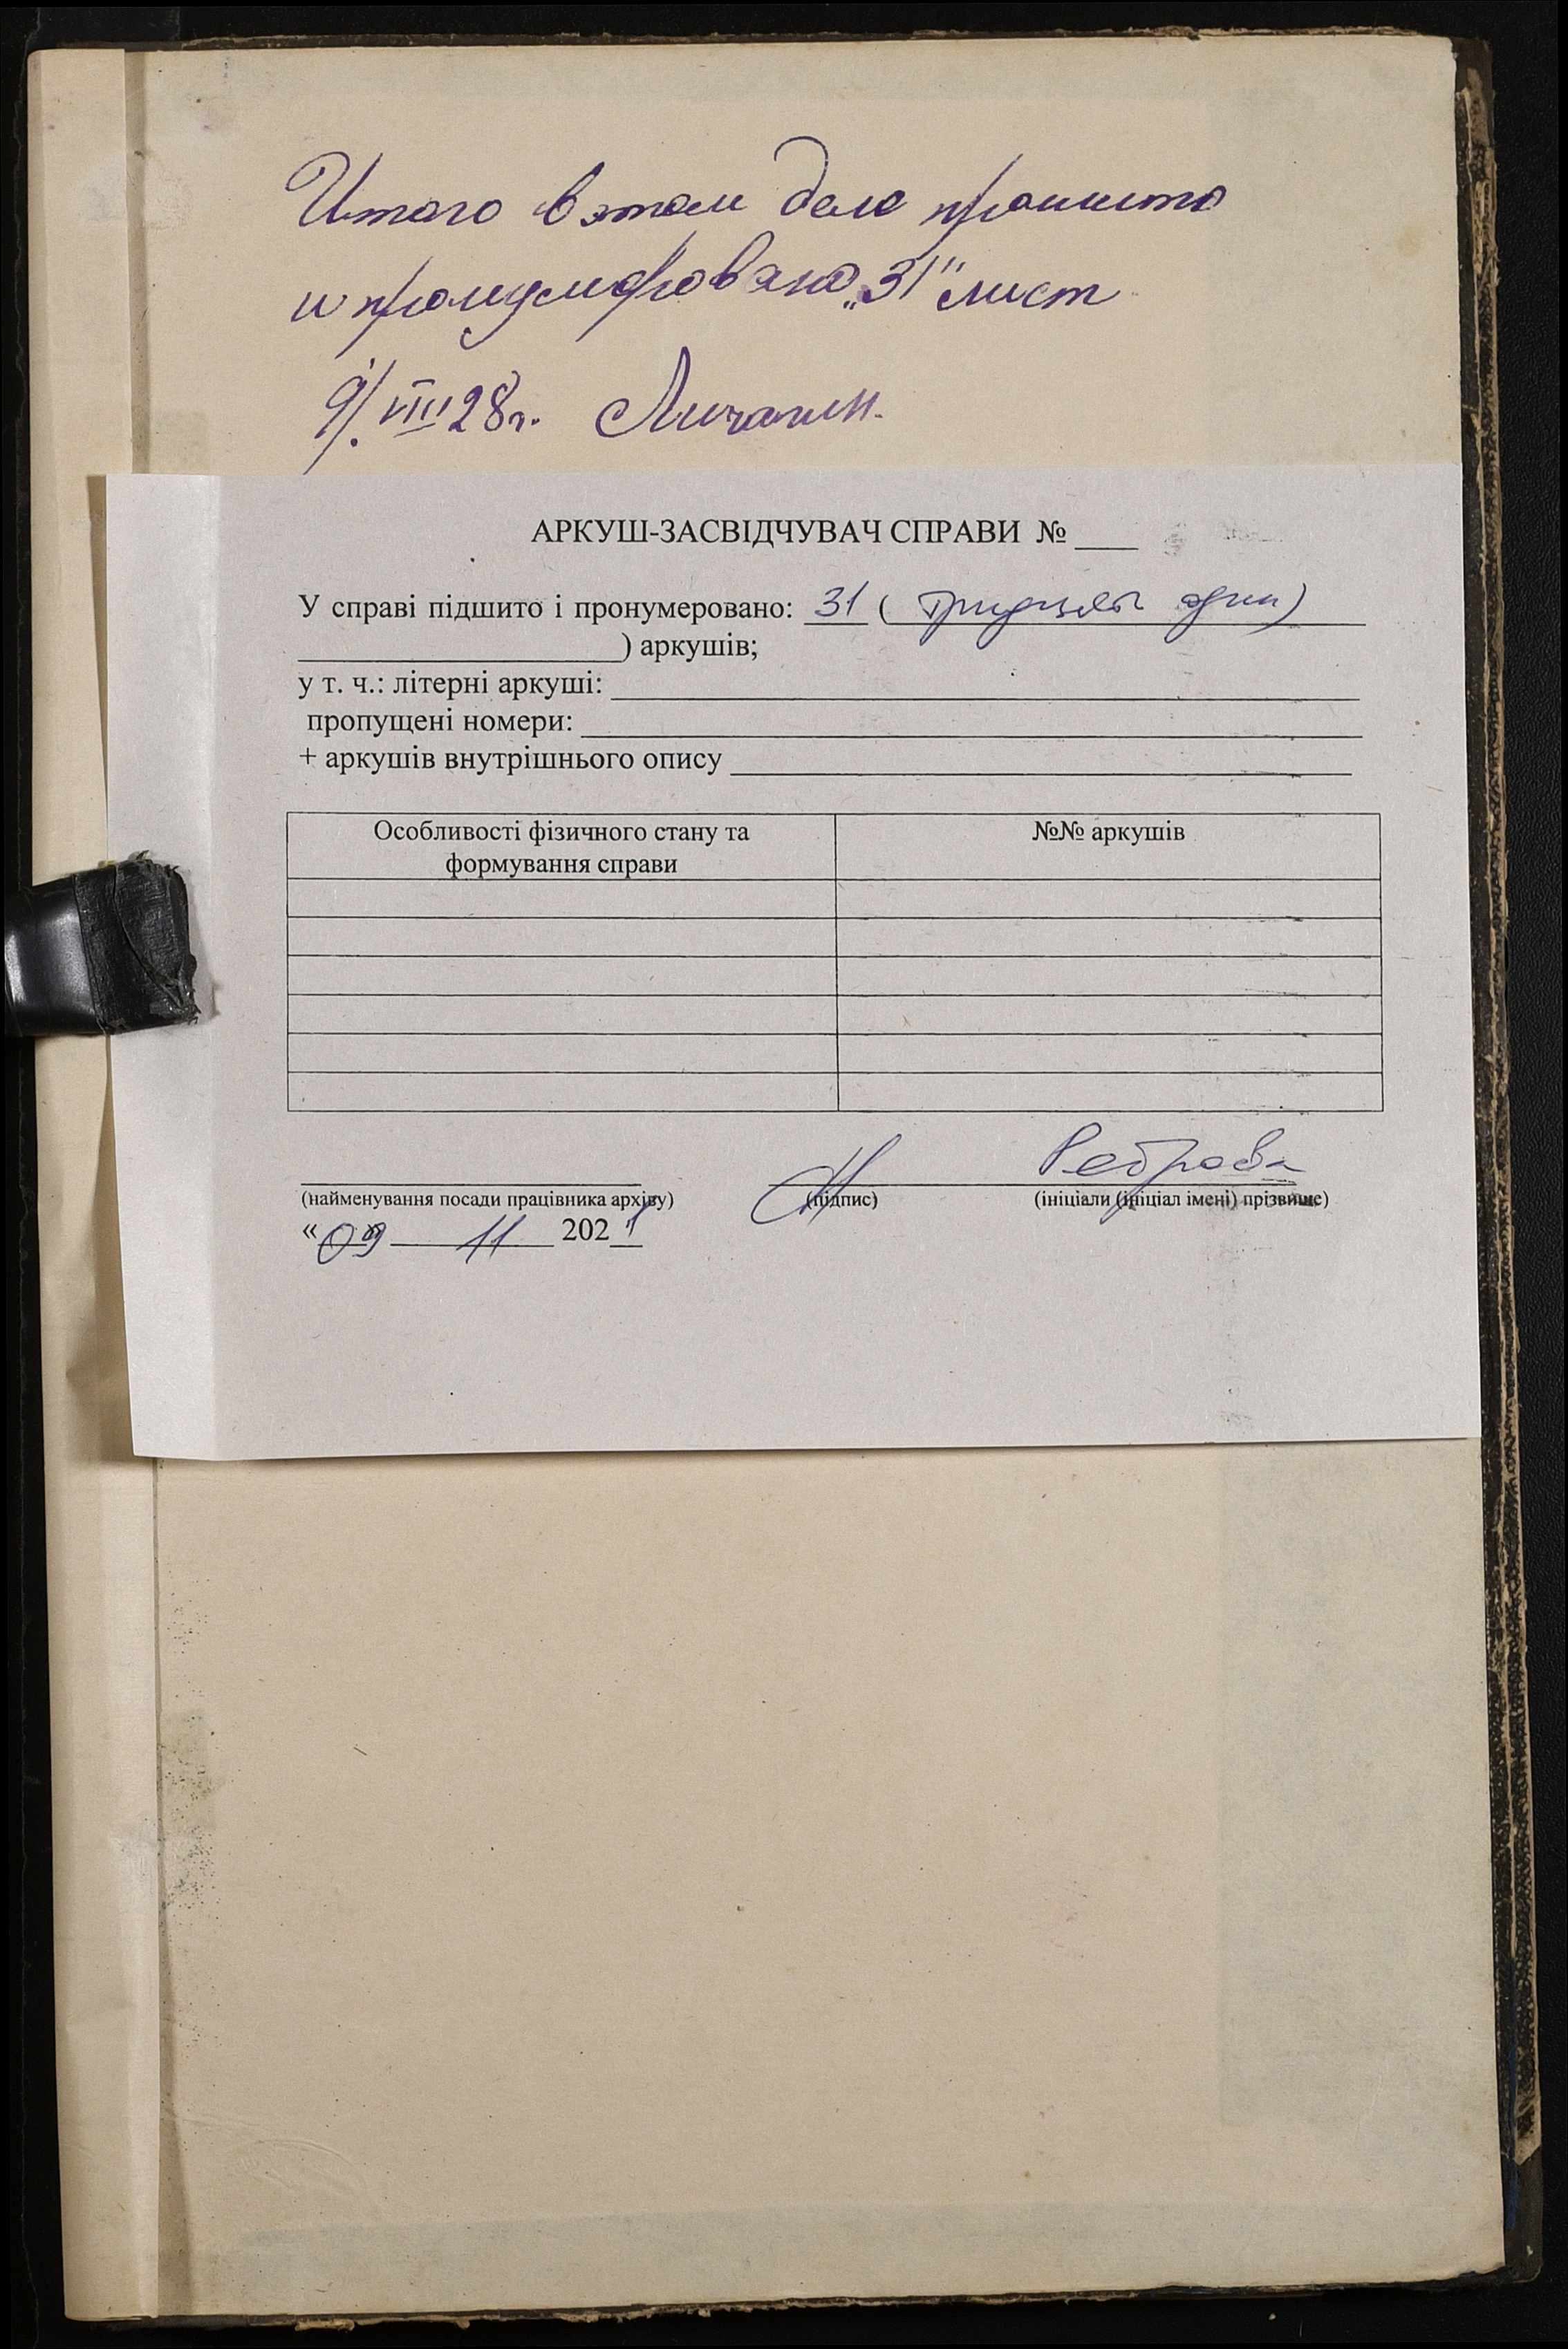 Итого в этом деле прошито
и пронумеровано „31" лист
9/VIII 28 г.
АРКУШ-ЗАСВІДЧУВАЧ СПРАВИ № ____
У справі підшито і пронумеровано: 31 ( тридцять один)
) аркушів;
у т. ч.: літерні аркуші:
пропущені номери:
+ аркушів внутрішнього опису
Особливості фізичного стану та
формування справи
№№ аркушів
Реброва
(найменування посади працівника архіву) (підпис) (ініціали (ініціал імені) прізвище)
« 09 » 11 2021